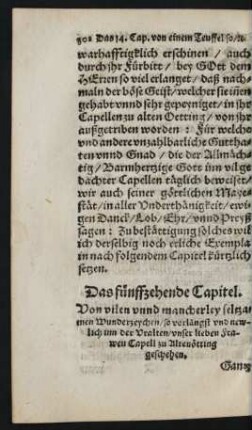 302 Das 14. Cap. von einem Teuffel so/ꝛc.
warhafftigklich erschinen / auch
durch jhr Fürbitt / bey GOtt dem
HErren so viel erlanget / daß nach-
maln der böse Geist / welcher sie innen
gehabt vnnd sehr gepeyniget / in jhr
Capellen zu alten Oetting / von jhr
außgetriben worden : Für welche
vnd andere vnzahlbarliche Gutthaten
vnnd Gnad / die der Allmäch-
tig / Barmhertzige Gott inn vil ge-
dachter Capellen täglich beweiset /
wir auch seiner göttlichen Maye-
stät / in aller Vnderthänigkeit / ewi-
gen Danck / Lob / Ehr / vnnd Preyß
sagen : Zu bestättigung solches wil
ich derselbig noch etliche Exempla
in nach folgendem Capitel kürtzlich
setzen.
Das fünffzehende Capitel.
Von vilen vnnd mancherley seltza-
men Wunderzeychen / so vorlängst vnd new-
lich inn der Vralten / vnser lieben Fra-
wen Capell zu Altenötting
geschehen.
Gantz